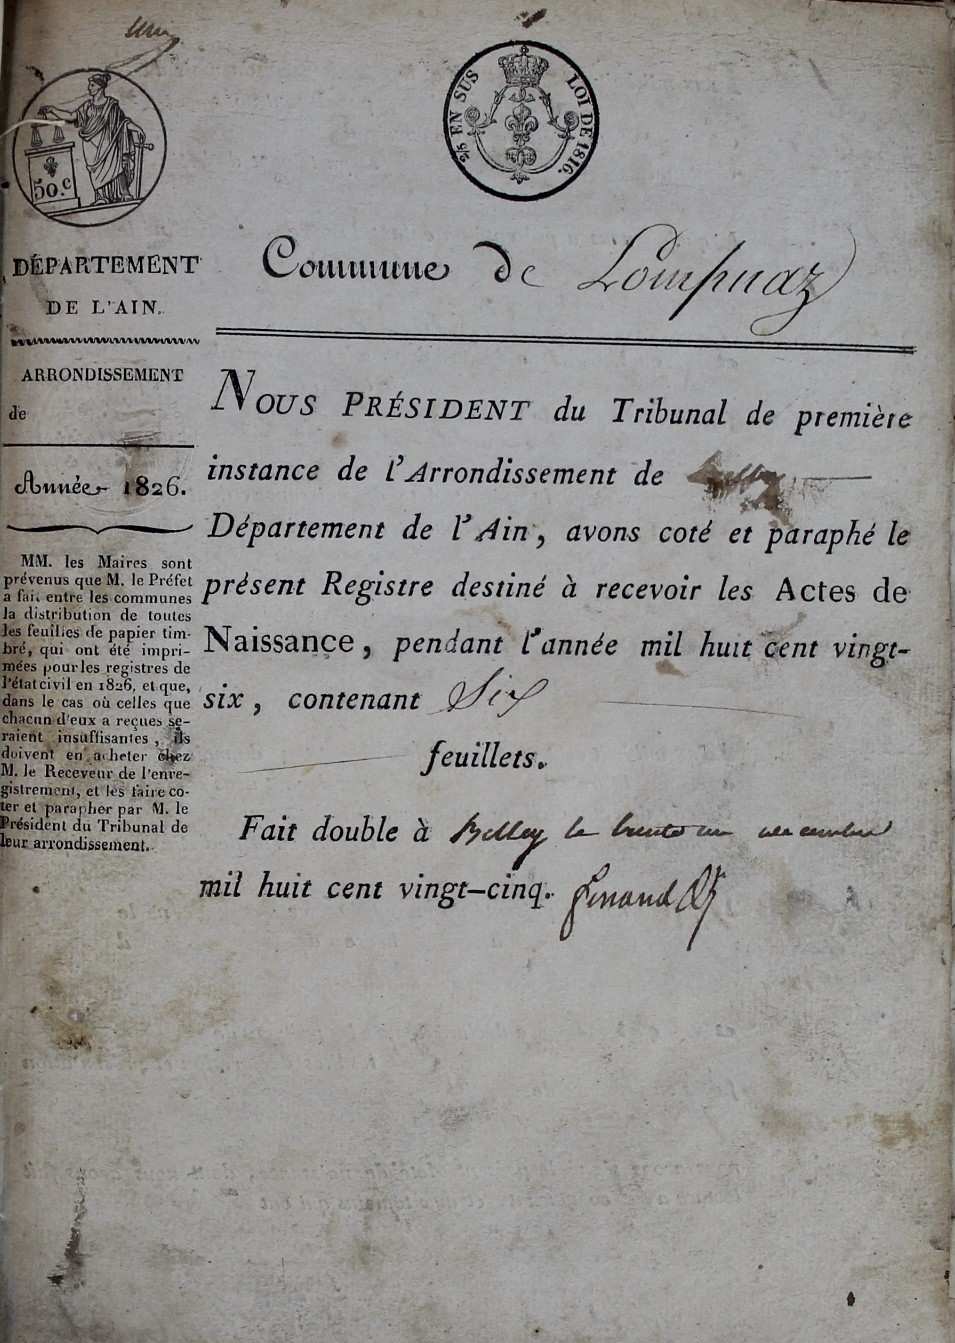 une
50.c
2/5 EN SUS
LOI DE 1816.
DÉPARTEMENT
DE L'AIN.
Commune de Lompnaz
ARRONDISSEMENT
de
Année 1826.
MM. les Maires sont
prévenus que M. le Préfet
a fait entre les communes
la distribution de toutes
les feuilles de papier tim-
bré, qui ont été impri-
mées pour les registres de
l'état civil en 1826, et que,
dans le cas où celles que
chacun d'eux a reçues se-
raient insuffisantes, ils
doivent en acheter chez
M. le Receveur de l'enre-
gistrement, et les faire co-
ter et parapher par M. le
Président du Tribunal de
leur arrondissement.
NOUS PRÉSIDENT du Tribunal de première
instance de l'Arrondissement de Belley
Département de l'Ain, avons coté et paraphé le
présent Registre destiné à recevoir les Actes de
Naissance, pendant l'année mil huit cent vingt-
six, contenant Six
feuillets.
Fait double à Belley le trente un decembre
mil huit cent vingt-cinq.